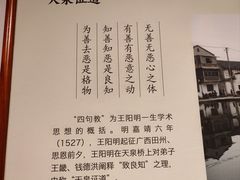 天泉证道
无善无恶心之体
有善有恶意之动
知善知恶是良知
为善去恶是格物
“四句教”为王阳明一生学术
思想的概括。明嘉靖六年
（1527），王阳明起征广西田州、
思恩前夕，王阳明在天泉桥上对弟子
王畿、钱德洪阐释“致良知”之理，
史称“天泉证道”。